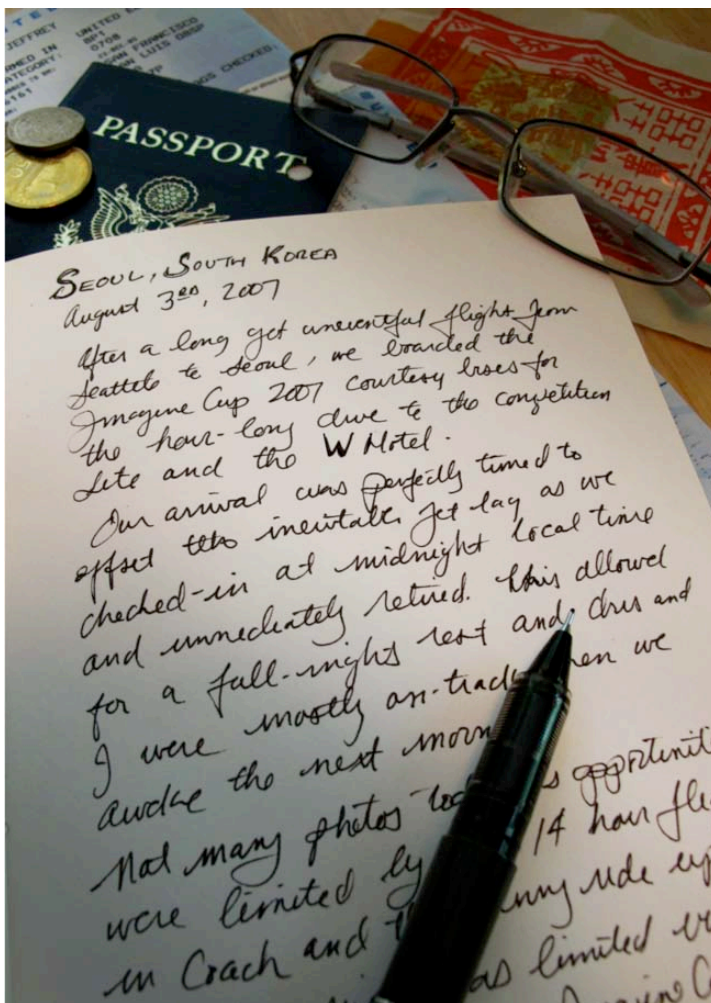 JEFFREY
UNITED
BP1
0708
CATEGORY:
SAN FRANCISCO
SAN LUIS OBSP
CHECKED:
6161
PASSPORT
SEOUL, SOUTH KOREA
August 3RD, 2007
After a long yet uneventful flight from
Seattle to Seoul, we boarded the
Imagine Cup 2007 courtesy buses for
the hour-long drive to the competition
site and the W Hotel.
Our arrival was perfectly timed to
offset the inevitable jet lag as we
checked-in at midnight local time
and immediately retired. This allowed
for a full-night rest and Chris and
I were mostly on-track when we
awoke the next
Not many photos opportunit
were limited by 14 hour
in Coach and ride
as limited